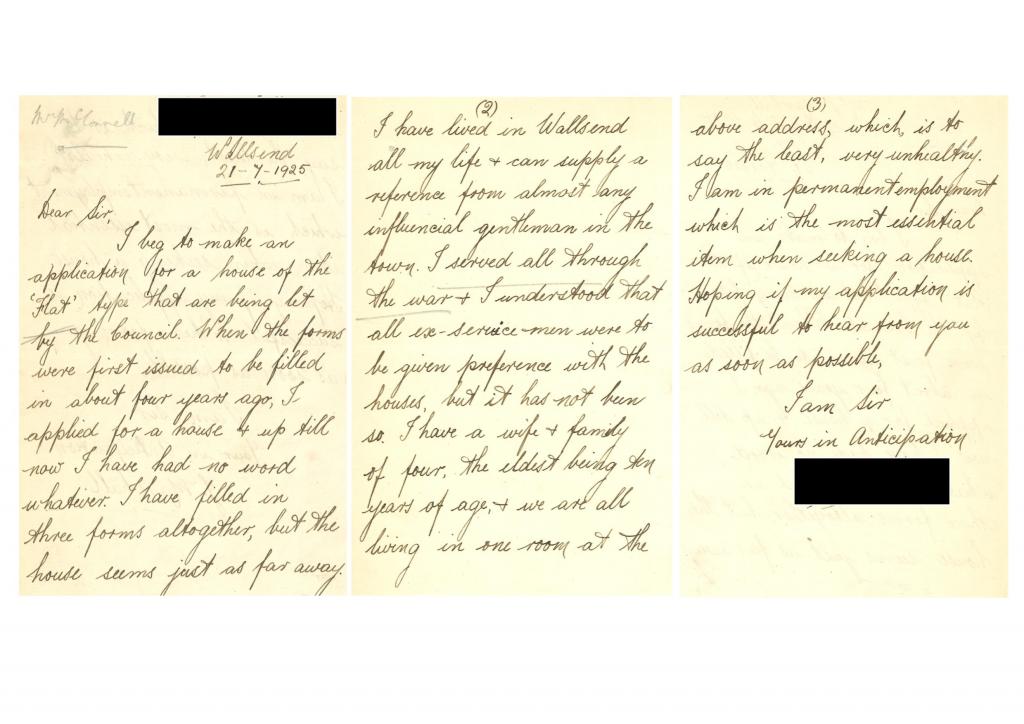 Wallsend
21-7-1925
Dear Sir,
I beg to make an
application for a house of the
'Flat' type that are being let
by the Council. When the forms
were first issued to be filled
in about four years ago, I
applied for a house + up till
now I have had no word
whatever. I have filled in
three forms altogether, but the
house seems just as far away.
(2)
I have lived in Wallsend
all my life + can supply a
reference from almost any
influencial gentleman in the
town. I served all through
the war + I understood that
all ex-service-men were to
be given preference with the
houses, but it has not been
so. I have a wife + family
of four, the eldest being ten
years of age, + we are all
living in one room at the
(3)
above address, which, is to
say the least, very unhealthy.
I am in permanent employment
which is the most essential
item when seeking a house.
Hoping if my application is
successful to hear from you
as soon as possible,
I am Sir
Yours in Anticipation